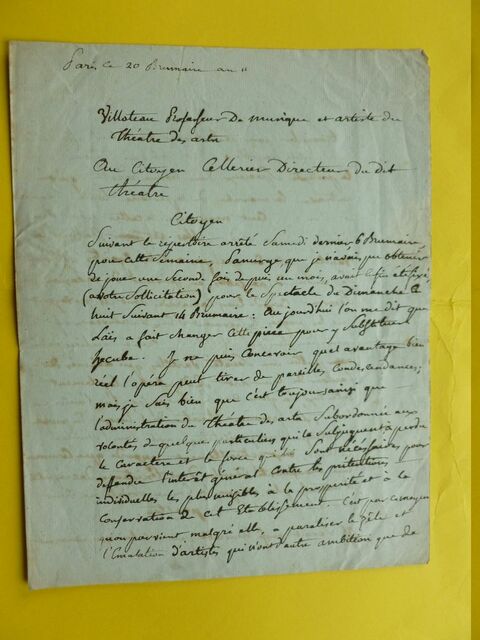 Paris le 20 Brumaire an
Villoteau Professeur De musique et artiste du
théâtre des arts
Au Citoyen Cellerier Directeur du dit
théatre
Citoyen
Suivant le repertoire arrêté Samedi dernier 6 Brumaire,
pour cette Semaine, Panurge, que je n'avais pu obtenir
de jouer une Seconde fois depuis un mois, avait été fixé
(a votre Sollicitation) pour le Spectacle de Dimanche
huit Suivant 14 Brumaire: Aujourd'hui l'on me dit que
Laïs a fait changer cette pièce pour y Substituer
hecube. Je ne puis Concevoir quel avantage bien
réel l'opéra peut tirer de pareilles Condescendances;
mais je Sais bien que c'est toujours ainsi que
l'administration du Théâtre des arts Subordonnée aux
volontés de quelques particuliers qui la Subjuguent a perdu
le Caractère et la force qui Sont nécessaires pour
deffendre l'intérêt général Contre les prétentions
individuelles les plus nuisibles à la prosperité et à la
Conservation de cet Etablissement. C'est par ce moyen
qu'on parvient, malgré elle, a paraliser le Zèle et
l'Emulation d'artistes qui n'ont d'autre ambition que de